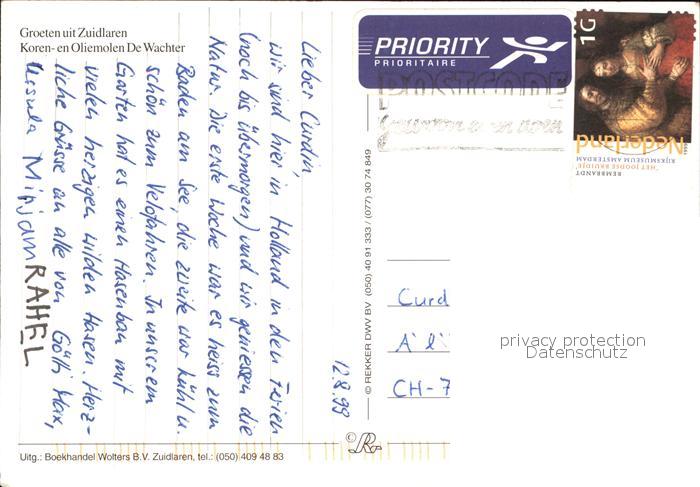 Groeten uit Zuidlaren
Koren- en Oliemolen De Wachter
12.8.99
Lieber Curdin,
wir sind hier in Holland in den Ferien
(noch bis übermorgen) und wir geniessen die
Natur. Die erste Woche war es heiss zum
Baden am See, die zweite war kühl u.
schön zum Velofahren. In unserem
Garten hat es einen Hasenbau mit
vielen herzigen wilden Hasen. Herz-
liche Grüsse an alle von Götti Max,
Ursula Mirjam RAHEL
Uitg.: Boekhandel Wolters B.V. Zuidlaren, tel.: (050) 409 48 83
© REKKER DWV BV (050) 40 91 333 / (077) 30 74 849
PRIORITY
PRIORITAIRE
POSTCODE
1G
Nederland
REMBRANDT
"HET JOODSE BRUIDJE"
RIJKSMUSEUM AMSTERDAM
Curd
CH-7
privacy protection
Datenschutz